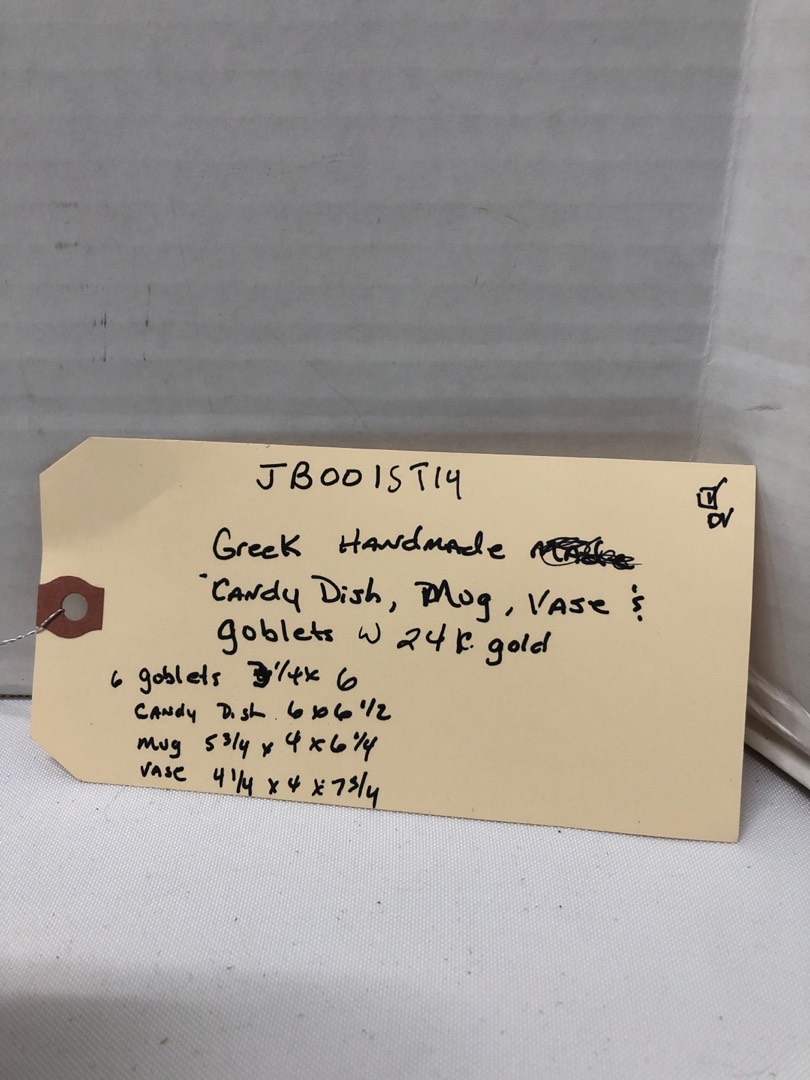 JB001ST14
DV
Greek Handmade
Candy Dish, Mug, Vase &
goblets w 24 K gold
6 goblets 3 1/4 x 6
Candy Dish 6 x 6 1/2
Mug 5 3/4 x 4 x 6 1/4
Vase 4 1/4 x 4 x 7 3/4